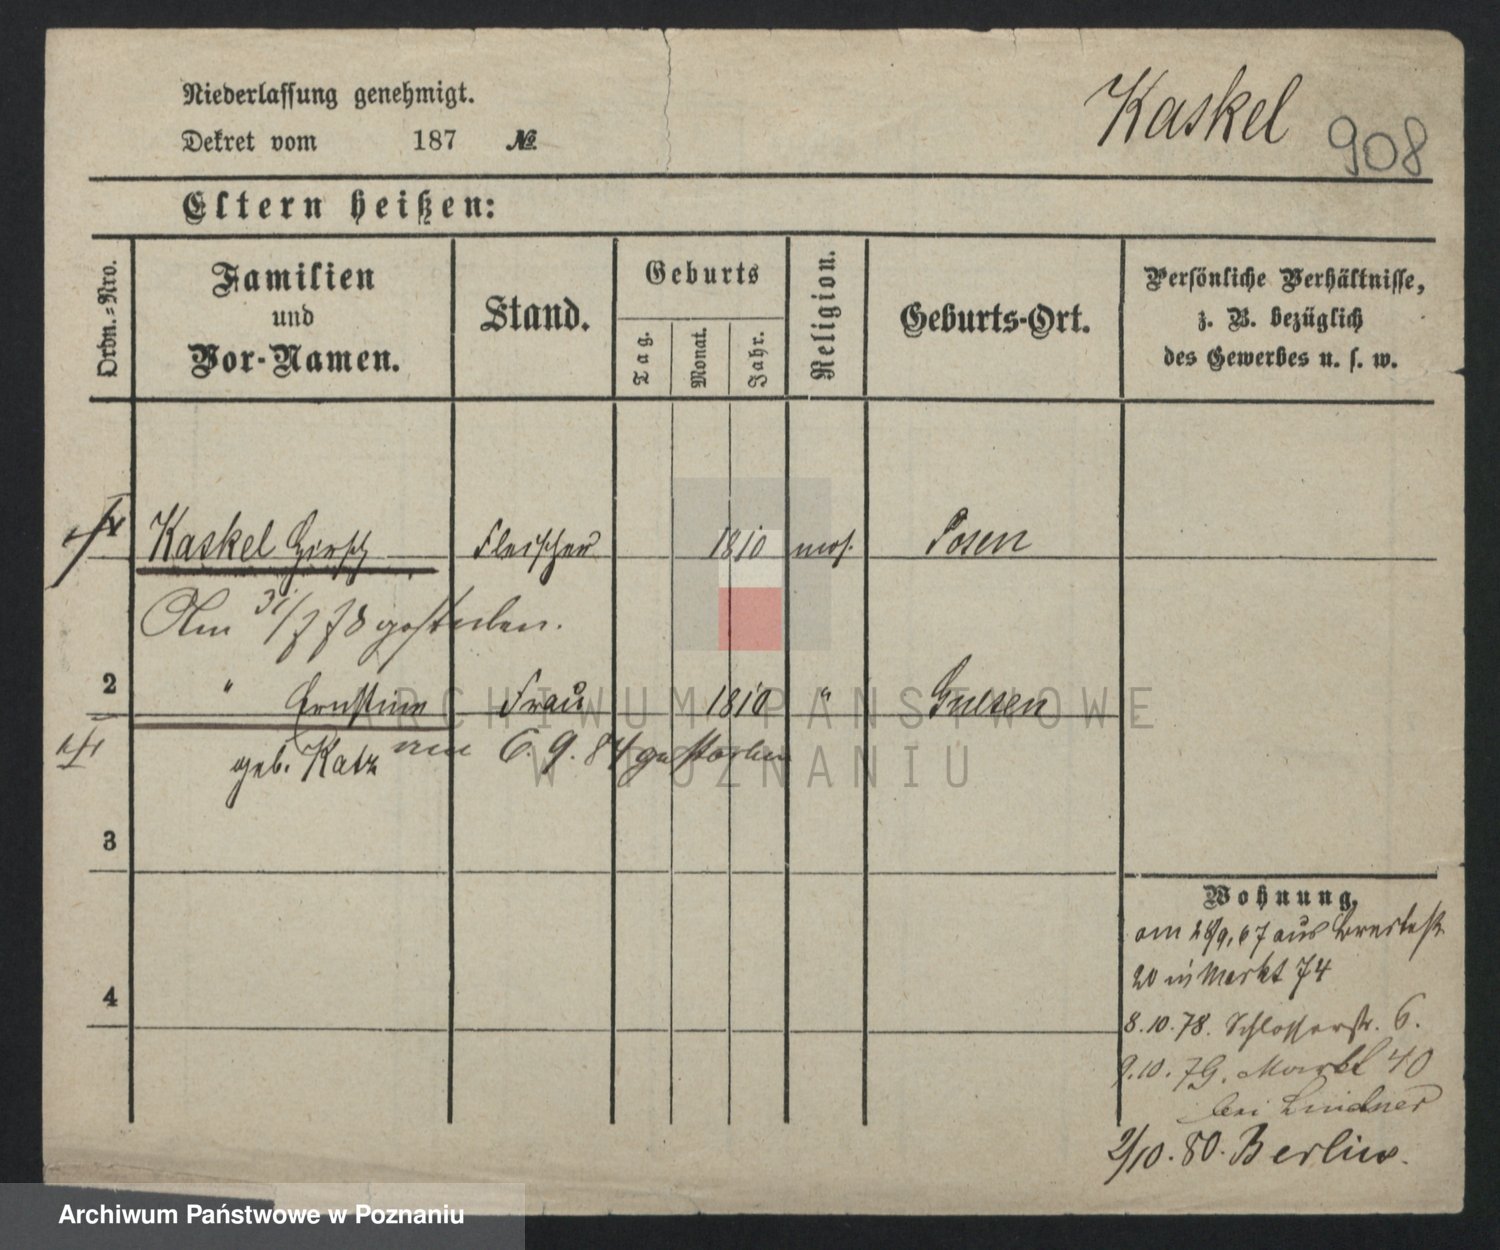 Niederlassung genehmigt.
Dekret vom 187 №
Kaskel 908
Eltern heißen:
Ordn.-Nro.
Familien und Vor-Namen.
Stand.
Geburts
Tag.
Monat.
Jahr.
Religion.
Geburts-Ort.
Persönliche Verhältnisse,
z. B. bezüglich
des Gewerbes u. s. w.
Kaskel Hirsch Fleischer 1810 mos. Posen
Am 31/7 78 gestorben.
2 " Ernstine Frau 1810 " Gnesen
geb. Katz am 6.9.84 gestorben
3
4
Wohnung.
am 28/9, 67 aus
20 in Markt 74
8.10.78. Schlosserstr. 6.
9.10.79. Markt 40
bei Lindner
2/10.80. Berlin.
ARCHIWUM PAŃSTWOWE
W POZNANIU
Archiwum Państwowe w Poznaniu